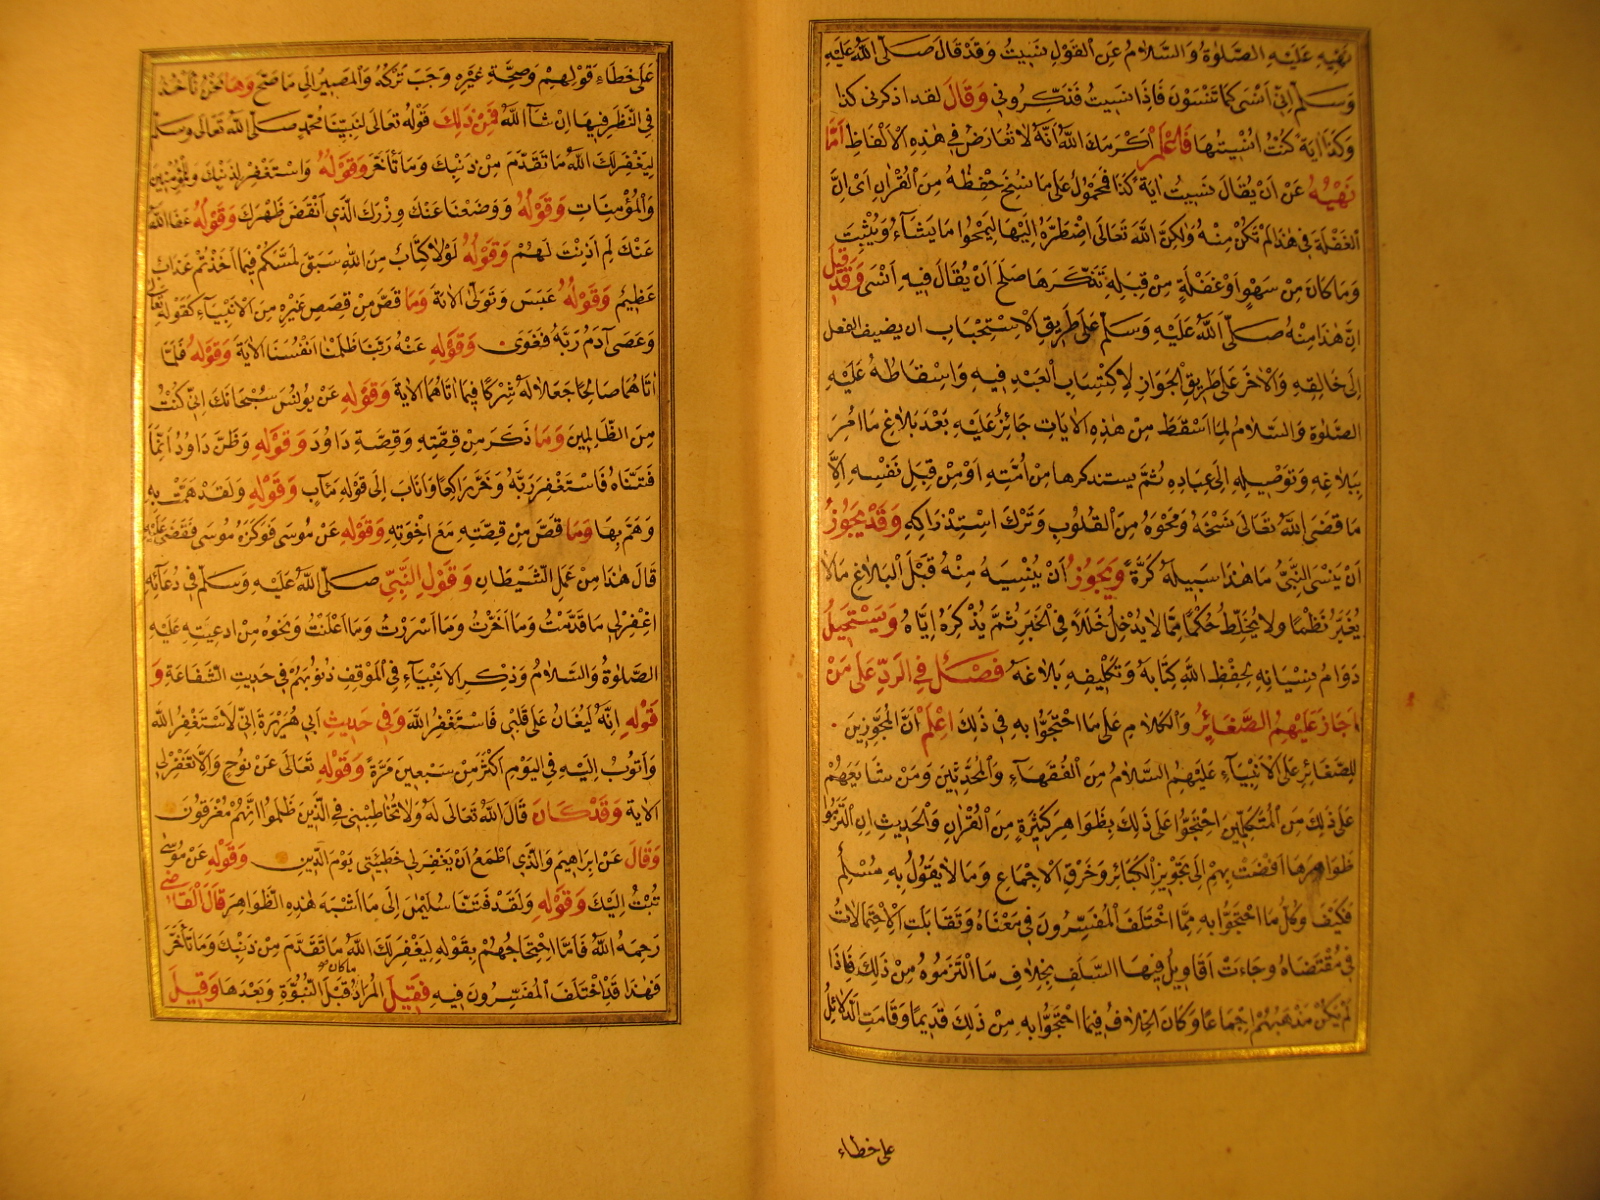 نهيه عليه الصلوة والسلام عن القول نسيت وقد قال صلى الله عليه
وسلم انى انسى كما تنسون فاذا نسيت فذكرونى وقال لقد اذكرنى كذا
وكذا اية كنت انسيتها فاعلم اكرمك الله انه لا تعارض فى هذه الالفاظ اما
نهيه عن ان يقال نسيت اية كذا فمحمول على ما نسخ حفظه من القران اى ان
الغفلة فى هذا لم تكن منه ولكن الله تعالى اضطره اليها ليمحوا ما يشاء ويثبت
وما كان من سهو او غفلة من قبله تذكرها صلح ان يقال فيه انسى وقد قيل
ان هذا منه صلى الله عليه وسلم على طريق الاستحباب ان يضيف الفعل
الى خالقه والاخر على طريق الجواز لاكتساب العبد فيه واسقاطه عليه
الصلوة والسلام لما اسقط من هذه الايات جائز عليه بعد بلاغ ما امر
ببلاغه وتوصيله الى عباده ثم يستذكرها من امته او من قبل نفسه الا
ما قضى الله تعالى نسخه ومحوه من القلوب وترك استذكاره وقد يجوز
ان ينسى النبى ما هذا سبيله كرة ويجوز ان ينسيه منه قبل البلاغ ما لا
يغير نظما ولا يخلط حكما مما لا يدخل خللا فى الخبر ثم يذكره اياه ويستحيل
دوام نسيانه لحفظ الله كتابه وتكليفه بلاغه فصل فى الرد على من
اجاز عليهم الصغائر والكلام على ما احتجوا به فى ذلك اعلم ان المجوزين
للصغائر على الانبياء عليهم السلام من الفقهاء والمحدثين ومن شايعهم
على ذلك من المتكلمين احتجوا على ذلك بظواهر كثيرة من القران والحديث ان التزموا
ظواهرها افضت بهم الى تجويز الكبائر وخرق الاجماع وما لا يقول به مسلم
فكيف وكل ما احتجوا به مما اختلف المفسرون فى معناه وتقابلت الاحتمالات
فى مقتضاه وجاءت اقاويل فيها السلف بخلاف ما التزموه من ذلك فاذا
لم يكن مذهبهم اجماعا وكان الخلاف فيما احتجوا به من ذلك قديما وقامت الدلائل
على خطاء
على خطاء قولهم وصحة غيره وجب تركه والمصير الى ما صح وها نحن ناخذ
فى النظر فيها ان شاء الله فمن ذلك قوله تعالى لنبينا محمد صلى الله تعالى وسلم
ليغفر لك الله ما تقدم من ذنبك وما تأخر وقوله واستغفر لذنبك وللمؤمنين
والمؤمنات وقوله ووضعنا عنك وزرك الذى انقض ظهرك وقوله عفا الله
عنك لم اذنت لهم وقوله لولا كتاب من الله سبق لمسكم فيما اخذتم عذاب
عظيم وقوله عبس وتولى الاية وما قص من قصص غيره من الانبياء كقوله تعالى
وعصى آدم ربه فغوى وقوله عنه ربنا ظلمنا انفسنا الاية وقوله فلما
اتاهما صالحا جعلا له شركا فيما اتاهما الاية وقوله عن يونس سبحانك انى كنت
من الظالمين وما ذكر من قصته وقصة داود وقوله وظن داود انما
فتناه فاستغفر ربه وخر راكعا واناب الى قوله مآب وقوله ولقد همت به
وهم بها وما قص من قصته مع اخوته وقوله عن موسى فوكزه موسى فقضى عليه
قال هذا من عمل الشيطان وقول النبى صلى الله عليه وسلم فى دعائه
اغفر لى ما قدمت وما اخرت وما اسررت وما اعلنت ونحوه من ادعيته عليه
الصلوة والسلام وذكر الانبياء فى الموقف ذنوبهم فى حديث الشفاعة و
قوله انه ليغان على قلبى فاستغفر الله وفى حديث ابى هريرة انى لاستغفر الله
واتوب اليه فى اليوم اكثر من سبعين مرة وقوله تعالى عن نوح والا تغفر لى
الاية وقد كان قال الله تعالى له ولا تخاطبنى فى الذين ظلموا انهم مغرقون
وقال عن ابراهيم والذى اطمع ان يغفر لى خطيئتى يوم الدين وقوله عن موسى
تبت اليك وقوله ولقد فتنا سليمن الى ما اشبه هذه الظواهر قال القاضى
رحمه الله فاما احتجاجهم بقوله ليغفر لك الله ما تقدم من ذنبك وما تأخر
فهذا قد اختلف المفسرون فيه فقيل المراد ما كان قبل النبوة وبعدها وقيل